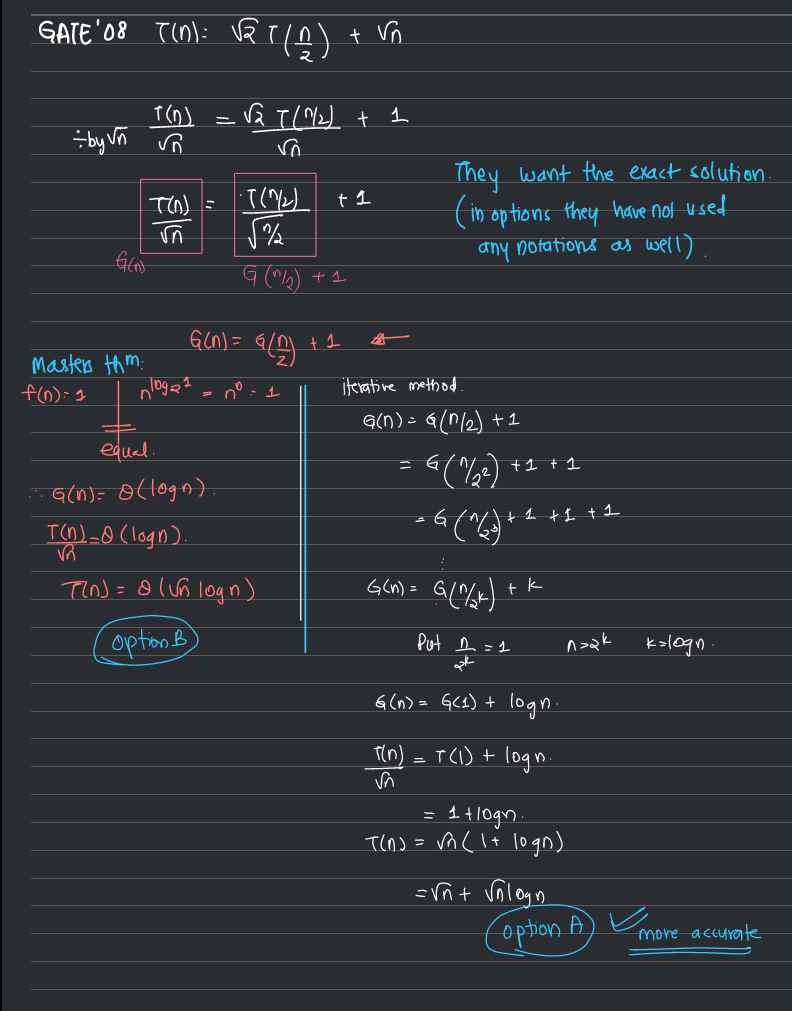 GATE'08 T(n): √2 T(n/2) + √n
÷by√n T(n)/√n = √2 T(n/2)/√n + 1
T(n)/√n = T(n/2)/√n/2 + 1
G(n) G(n/2) + 1
They want the exact solution.
(in options they have not used
any notations as well).
G(n) = G(n/2) + 1 ←
Masters thm:
f(n)=1 | n^log₂1 = n⁰ = 1
equal.
∴ G(n)= θ(logn).
T(n)/√n = θ(logn).
T(n) = θ(√n logn)
option B
iterative method.
G(n) = G(n/2) + 1
= G(n/2²) + 1 + 1
= G(n/2³) + 1 + 1 + 1
⋮
G(n) = G(n/2^k) + k
Put n/2^k = 1 n=2^k k=logn.
G(n) = G(1) + logn.
T(n)/√n = T(1) + logn.
= 1+logn.
T(n) = √n(1+ logn)
=√n + √nlogn
option A ✓ more accurate